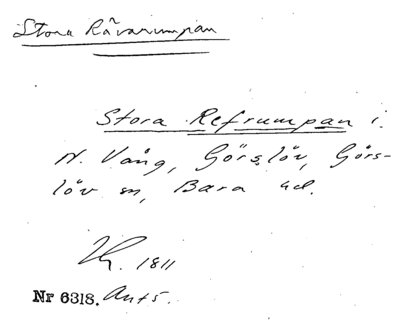 Stora Rävarumpan
Stora Refrumpan i
N. Vång, Görslöv, Görs-
löv sn, Bara hd.
1811
Nr 6318. Ant 5.